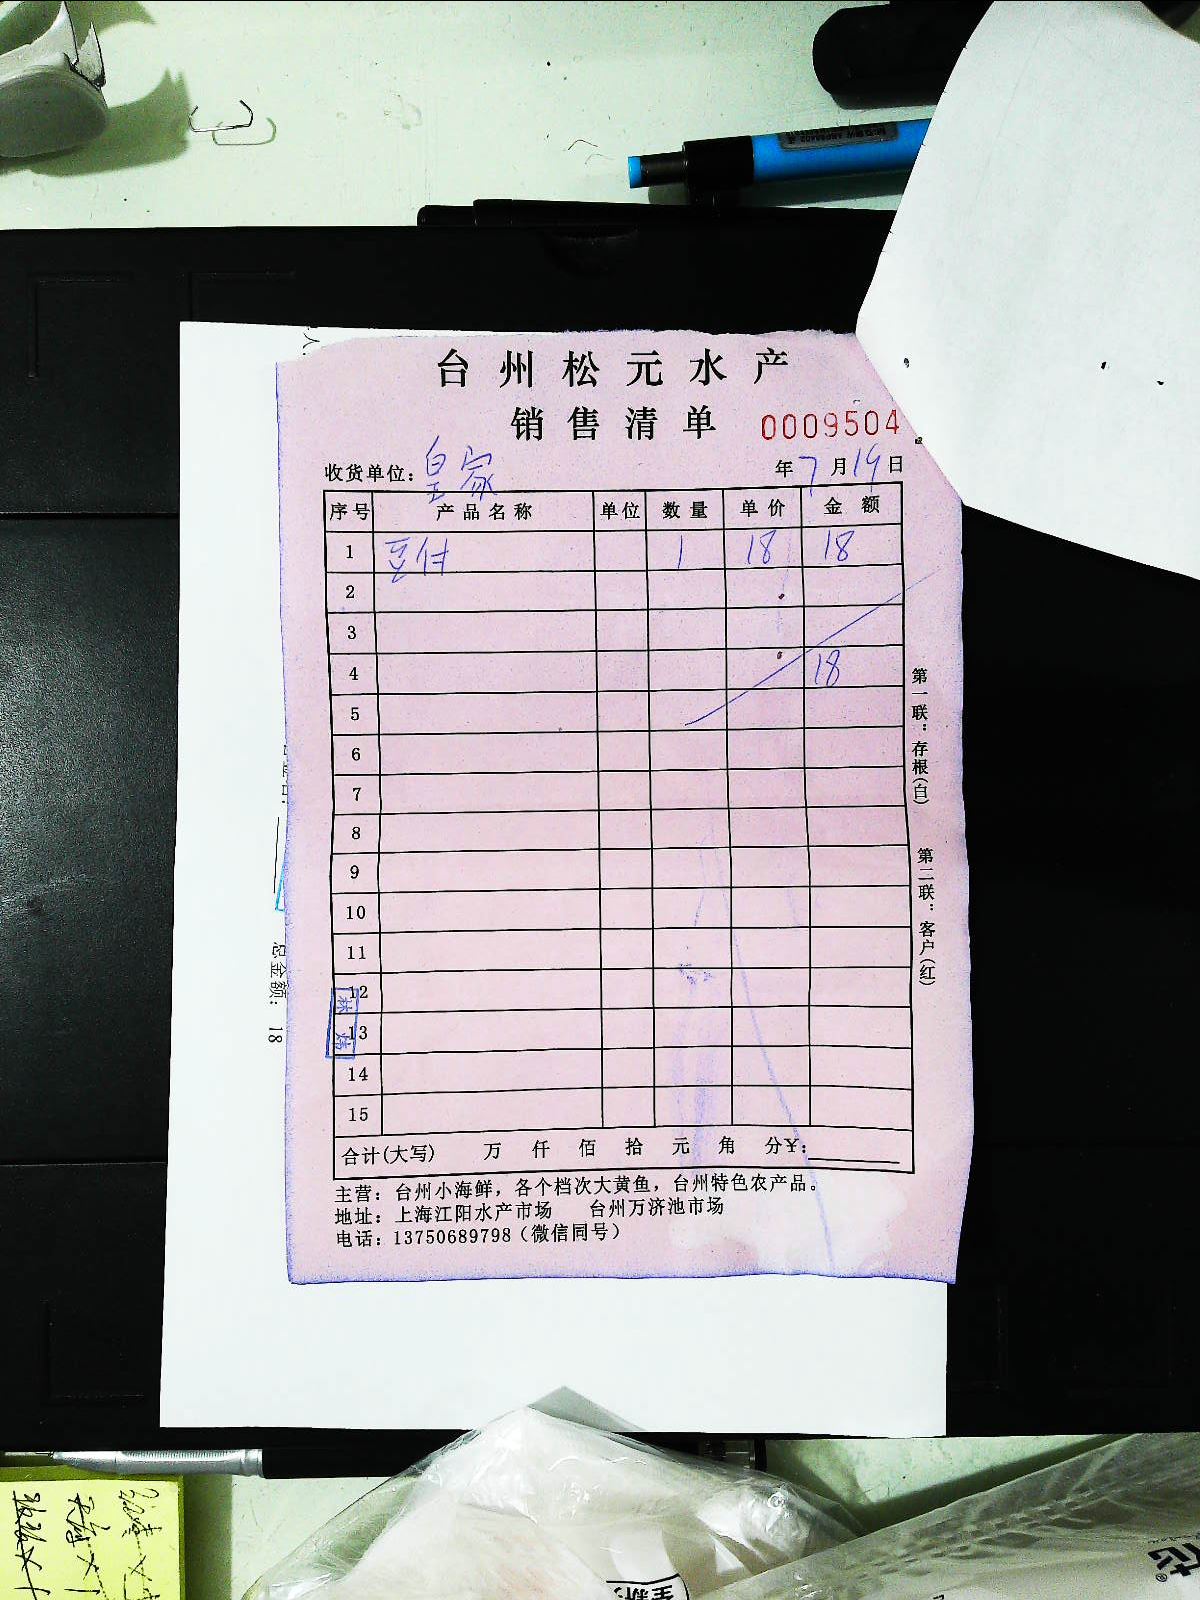 台州松元水产
销售清单 0009504
收货单位：皇家 年7月19日
序号 产品名称 单位 数量 单价 金额
1 豆付 1 18 18
2
3
4 18
5
6
7
8
9
10
11
12
13
14
15
合计(大写) 万 仟 佰 拾 元 角 分¥：
主营：台州小海鲜，各个档次大黄鱼，台州特色农产品。
地址：上海江阳水产市场 台州万济池市场
电话：13750689798（微信同号）
第一联：存根(白) 第二联：客户(红)
总金额： 18
全新